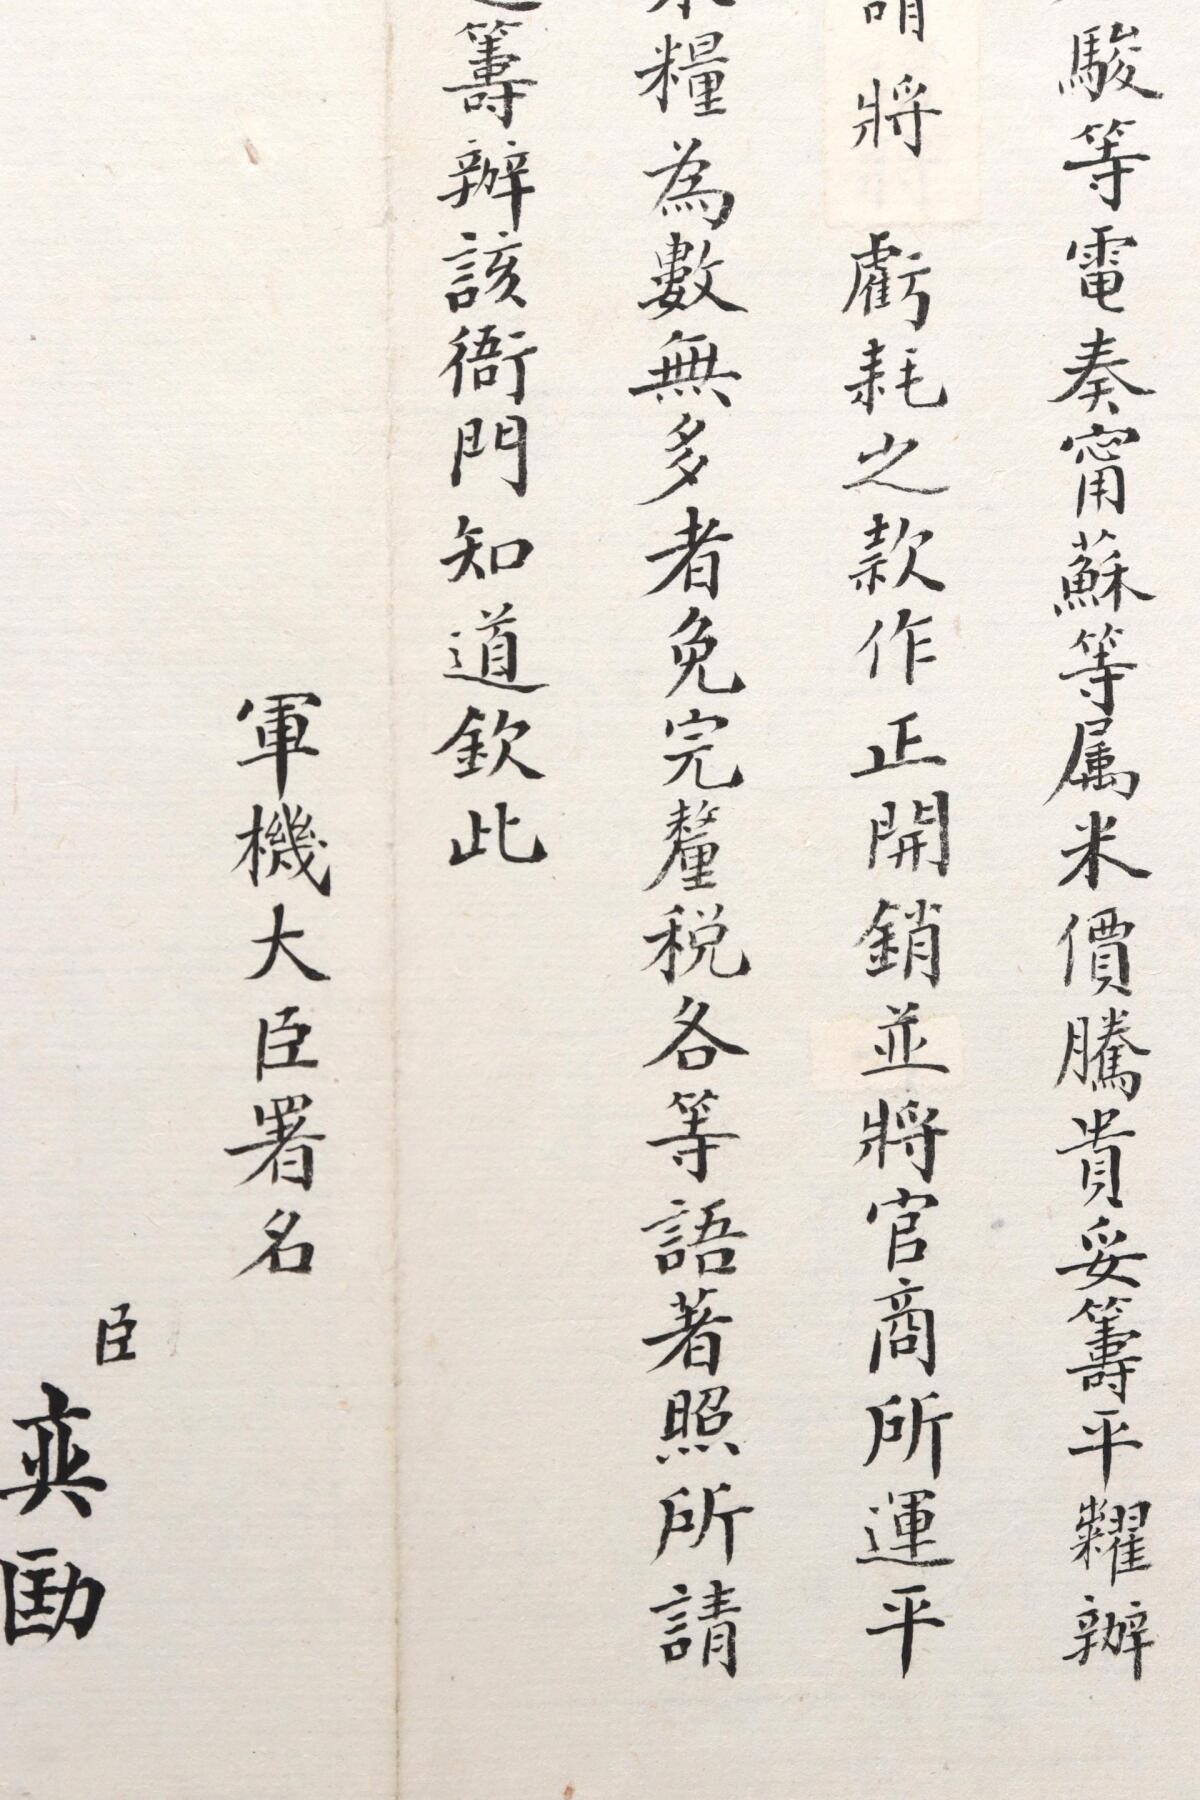 駿等電奏甯蘇等属米價騰貴妥籌平糶辦
請將虧耗之款作正開銷並將官商所運平
糧為數無多者免完釐税各等語著照所請
籌辦該衙門知道欽此
軍機大臣署名
臣奕劻